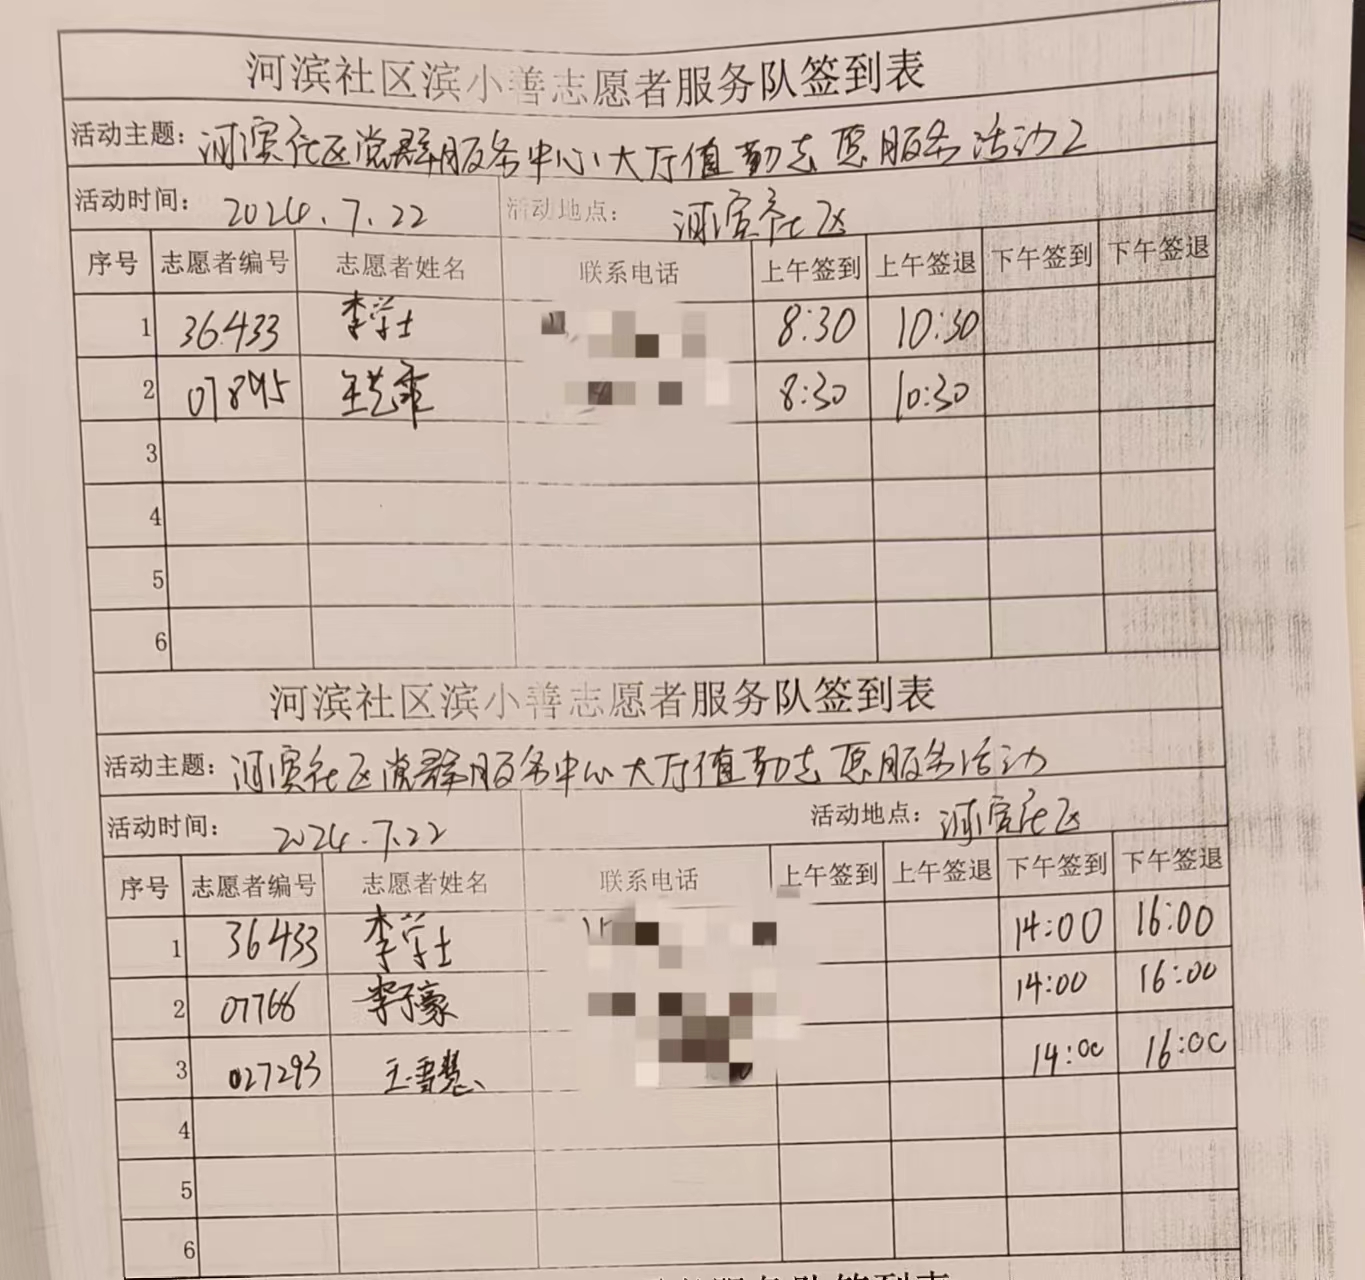 河滨社区滨小善志愿者服务队签到表
活动主题：河滨社区党群服务中心大厅值勤志愿服务活动2
活动时间： 2024.7.22 活动地点： 河滨社区
序号 志愿者编号 志愿者姓名 联系电话 上午签到 上午签退 下午签到 下午签退
1 36433 李学士 8:30 10:30
2 07895 王艺霏 8:30 10:30
3
4
5
6
河滨社区滨小善志愿者服务队签到表
活动主题：河滨社区党群服务中心大厅值勤志愿服务活动
活动时间： 2024.7.22 活动地点： 河滨社区
序号 志愿者编号 志愿者姓名 联系电话 上午签到 上午签退 下午签到 下午签退
1 36433 李学士 14:00 16:00
2 07766 李子豪 14:00 16:00
3 027293 王雪慧 14:00 16:00
4
5
6